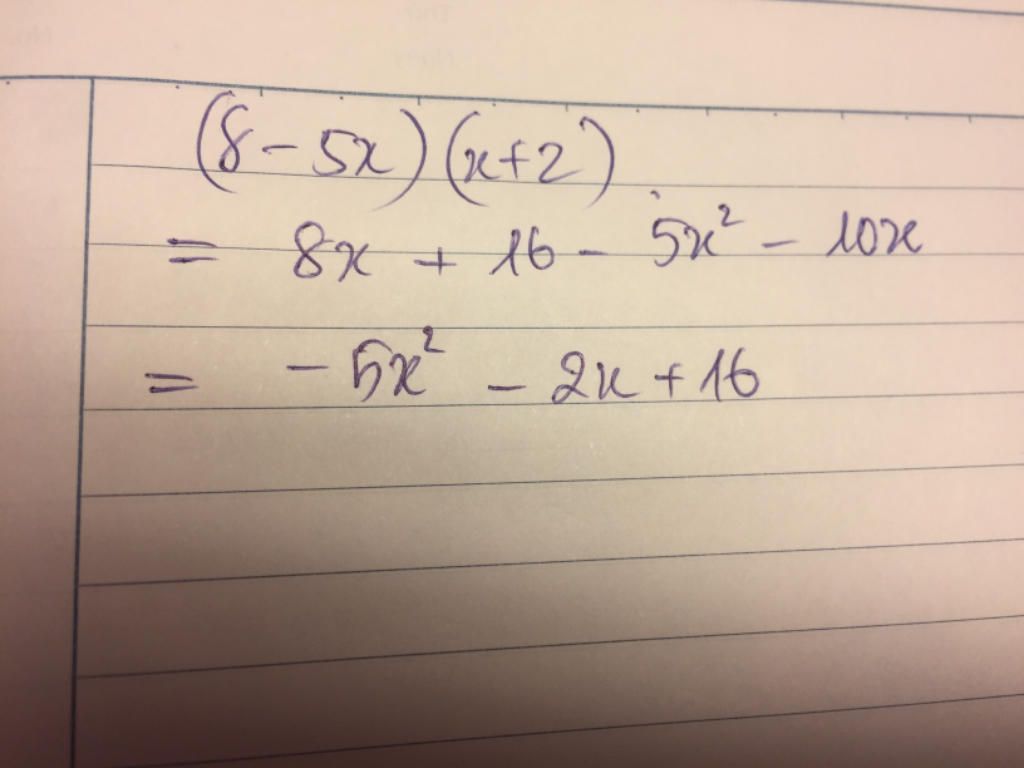 (8 - 5x)(x+2)
= 8x + 16 - 5x² - 10x
= - 5x² - 2x + 16